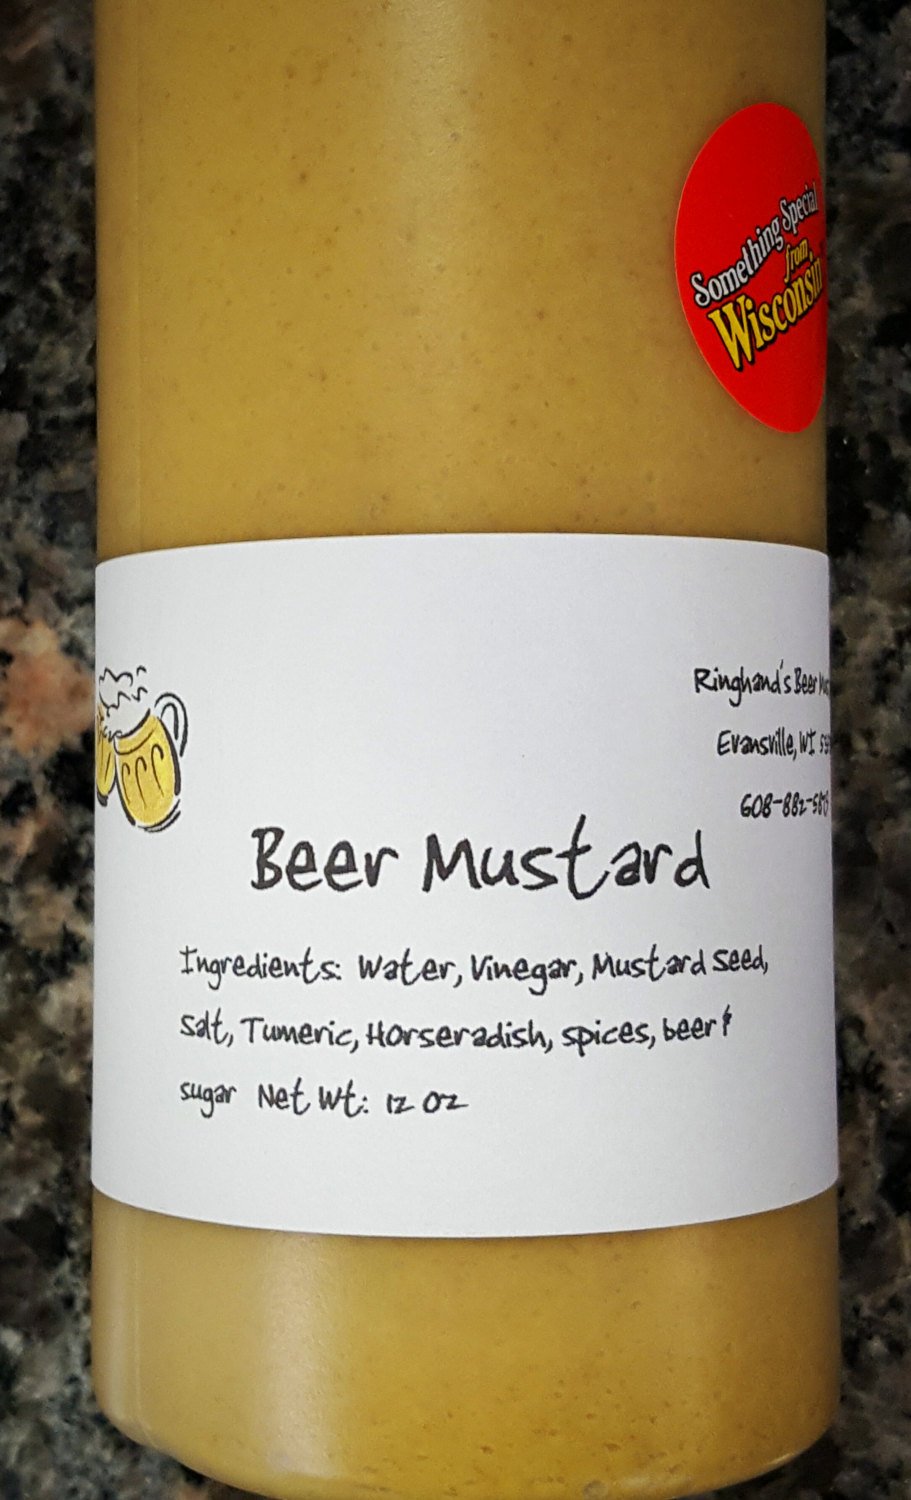 Something Special
from
Wisconsin
Ringhand's Beer
Evansville, WI
608-882-
Beer Mustard
Ingredients: Water, Vinegar, Mustard Seed,
Salt, Tumeric, Horseradish, spices, beer &
sugar Net Wt: 12 oz